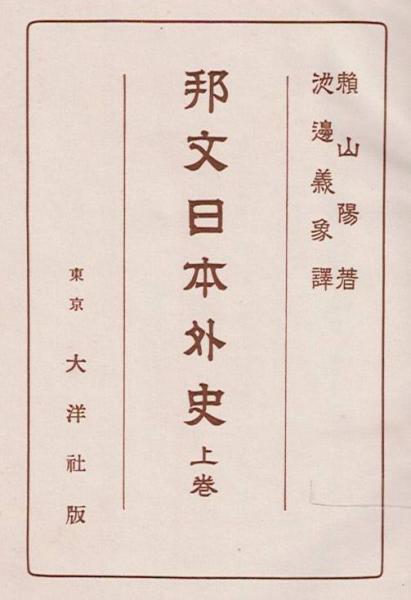 賴山陽著
池邊義象譯
邦文日本外史上巻
東京 大洋社版